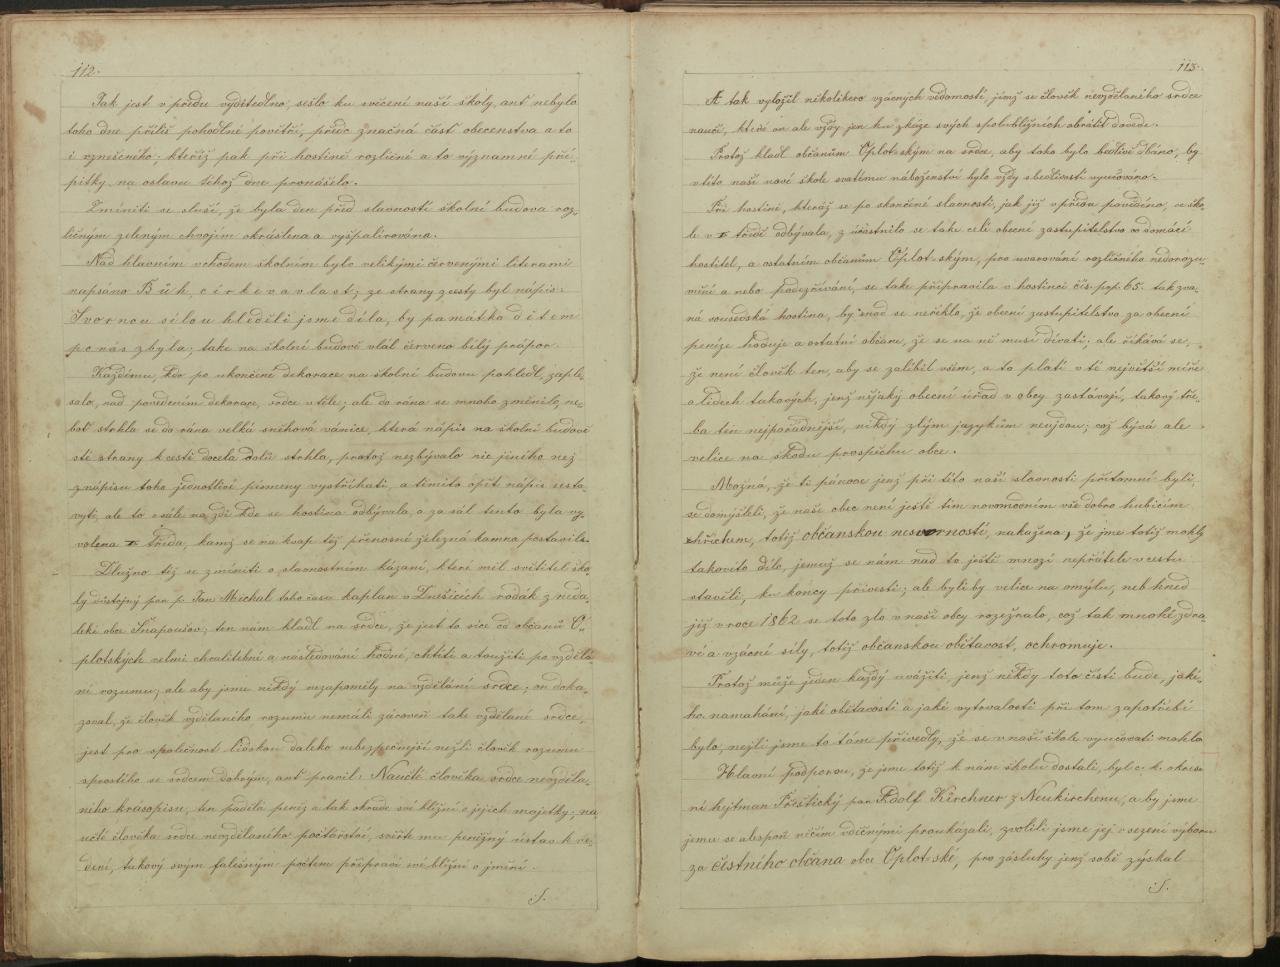 112.
Jak jest v předu vyditedlno, sešlo ku svěcení naší školy, anť nebylo
toho dne příliš pohodlné povětří, předc značná část obecenstva a to
i vznešeného; kteříž pak při hostině rozličné a to významné pří-
pitky na oslavu téhož dne pronášelo.
Zmíniti se sluší, že byla den před slavností školní budova roz-
ličným zeleným chvojím okrášlena a vyšpalírována.
Nad hlavním vchodem školním bylo velikými červenými literami
napsáno Bůh, církev a vlast; ze strany z cesty byl nápis:
Svornou silou hleděli jsme díla, by památka dítem
po nás zbyla; take na školní budově vlál červeno bílý prápor.
Každému, kdo po ukončené dekorace na školní budovu pohledl, zaple-
salo, nad povedením dekorace, srdce v těle; ale do rána se mnoho změnilo, ne-
boť strhla se do rána velká sněhová vánice, která nápis na školní budově
stě strany k cestě docela dolů strhla, pročež nezbývalo nic jiného než
z nápisu toho jednotlivé písmeny vystříhati, a těmito opět nápis sesta-
viti, ale to v sále na zdi kde se hostina odbývala, a za sál tento byla vy-
volena I třída, kamž se na kvap též přenosné železná kamna postavila.
Dlužno též se zmíniti o slavnostním kázaní, které měl světitel ško-
ly důstojný pan p. Jan Michal toho času kaplan v Dnešicích rodák z neda-
leké obce Šnapoušov; ten nám kladl na srdce, že jest to sice od občanů O-
plotských velmi chvalitebné a následování hodné, chtíti a toužiti po vzdělá-
ní rozumu; ale aby jsme nikdý nezapoměly na vzdělání srdce; on doka-
zoval, že člověk vzdělaného rozumu nemáli zároveň take vzdělané srdce,
jest pro společnost lidskou daleko nebezpečnější nežli člověk rozumu
sprostého se srdcem dobrým, anť pravil: Naučtě člověka srdce nevzděla-
ného krásopisu, ten padělá peníz a tak okrade své bližní o jejich majetky; na-
učtě člověka srdce nevzdělaného počtářství, svěřte mu peněžný ústav k ve-
dení, takový svým falešným počtem připraví své bližní o jmění.
S.
113.
A tak vyložil několikero vzácných vědomostí, jimž se člověk nevzdělaného srdce
naučí, které on ale vždy jen ku zkáze svých spolubližních obrátit dovede.
Protož kladl občanům Oplotským na srdce, aby toho bylo bedlivě dbáno, by
v této naší nové škole svatému náboženství bylo vždy s bedlivostí vyučováno.
Při hostině, kteráž se po skončené slavnosti, jak již v předu povědíno, ve ško-
le v I třídě odbývala, zúčastnilo se take celé obecní zastupitelstvo co domácí
hostitel, a ostatním občanům Oplotským, pro uvarování rozličného nedorozu-
mění a nebo podezřívání, se take připravila v hostinci čís. pop. 65. takzva-
ná sousedská hostina, by snad se neřeklo, že obecní zastupitelstvo za obecní
peníze hoduje a ostatní občané, že se na ně musí dívati; ale říkává se,
že není člověk ten, aby se zalíbil všem, a to platí v té největší míře
o lidech takových, jenž nějaký obecní úřad v obcy zastávají, takový tře-
ba ten nejpořádnější, nikdý zlým jazykům neujdou; což bývá ale
velice na škodu prospěchu obce.
Možná, že ti pánové jenž při této naší slavnosti přítomni byli,
se domýšleli, že naše obec není ještě tím novomocním vše dobro hubícím
hříchem, totiž občanskou nesvorností, nakažena, že jme totiž mohly
takovéto dílo, jemuž se nám nad to ještě mnozí nepřátelé v cestu
stavěli, ku koncy přivesti; ale byli by velice na omylu, neb hned
již v roce 1862 se toto zlo v naší obcy rozežralo, což tak mnohé zdra-
vé a vzácné síly, totiž občanskou obětavost, ochromuje.
Protož může jeden každý uvážiti, jenž někdy toto čísti bude, jaké-
ho namahání, jaké obětavosti a jaké vytrvalosti při tom zapotřebí
bylo, nejli jsme to tam přivedly, že se v naší škole vyučovati mohlo.
Hlavní podporou, že jsme totiž k nám školu dostali, byl c. k. okres-
ní hejtman Přeštický pan Adolf Kirchner z Neukirchenu, a by jsme
jemu se alespoň něčím vděčnými proukázali, zvolili jsme jej v sezení výboru
za čestného občana obce Oplotské, pro zásluhy jenž sobě získal
S.